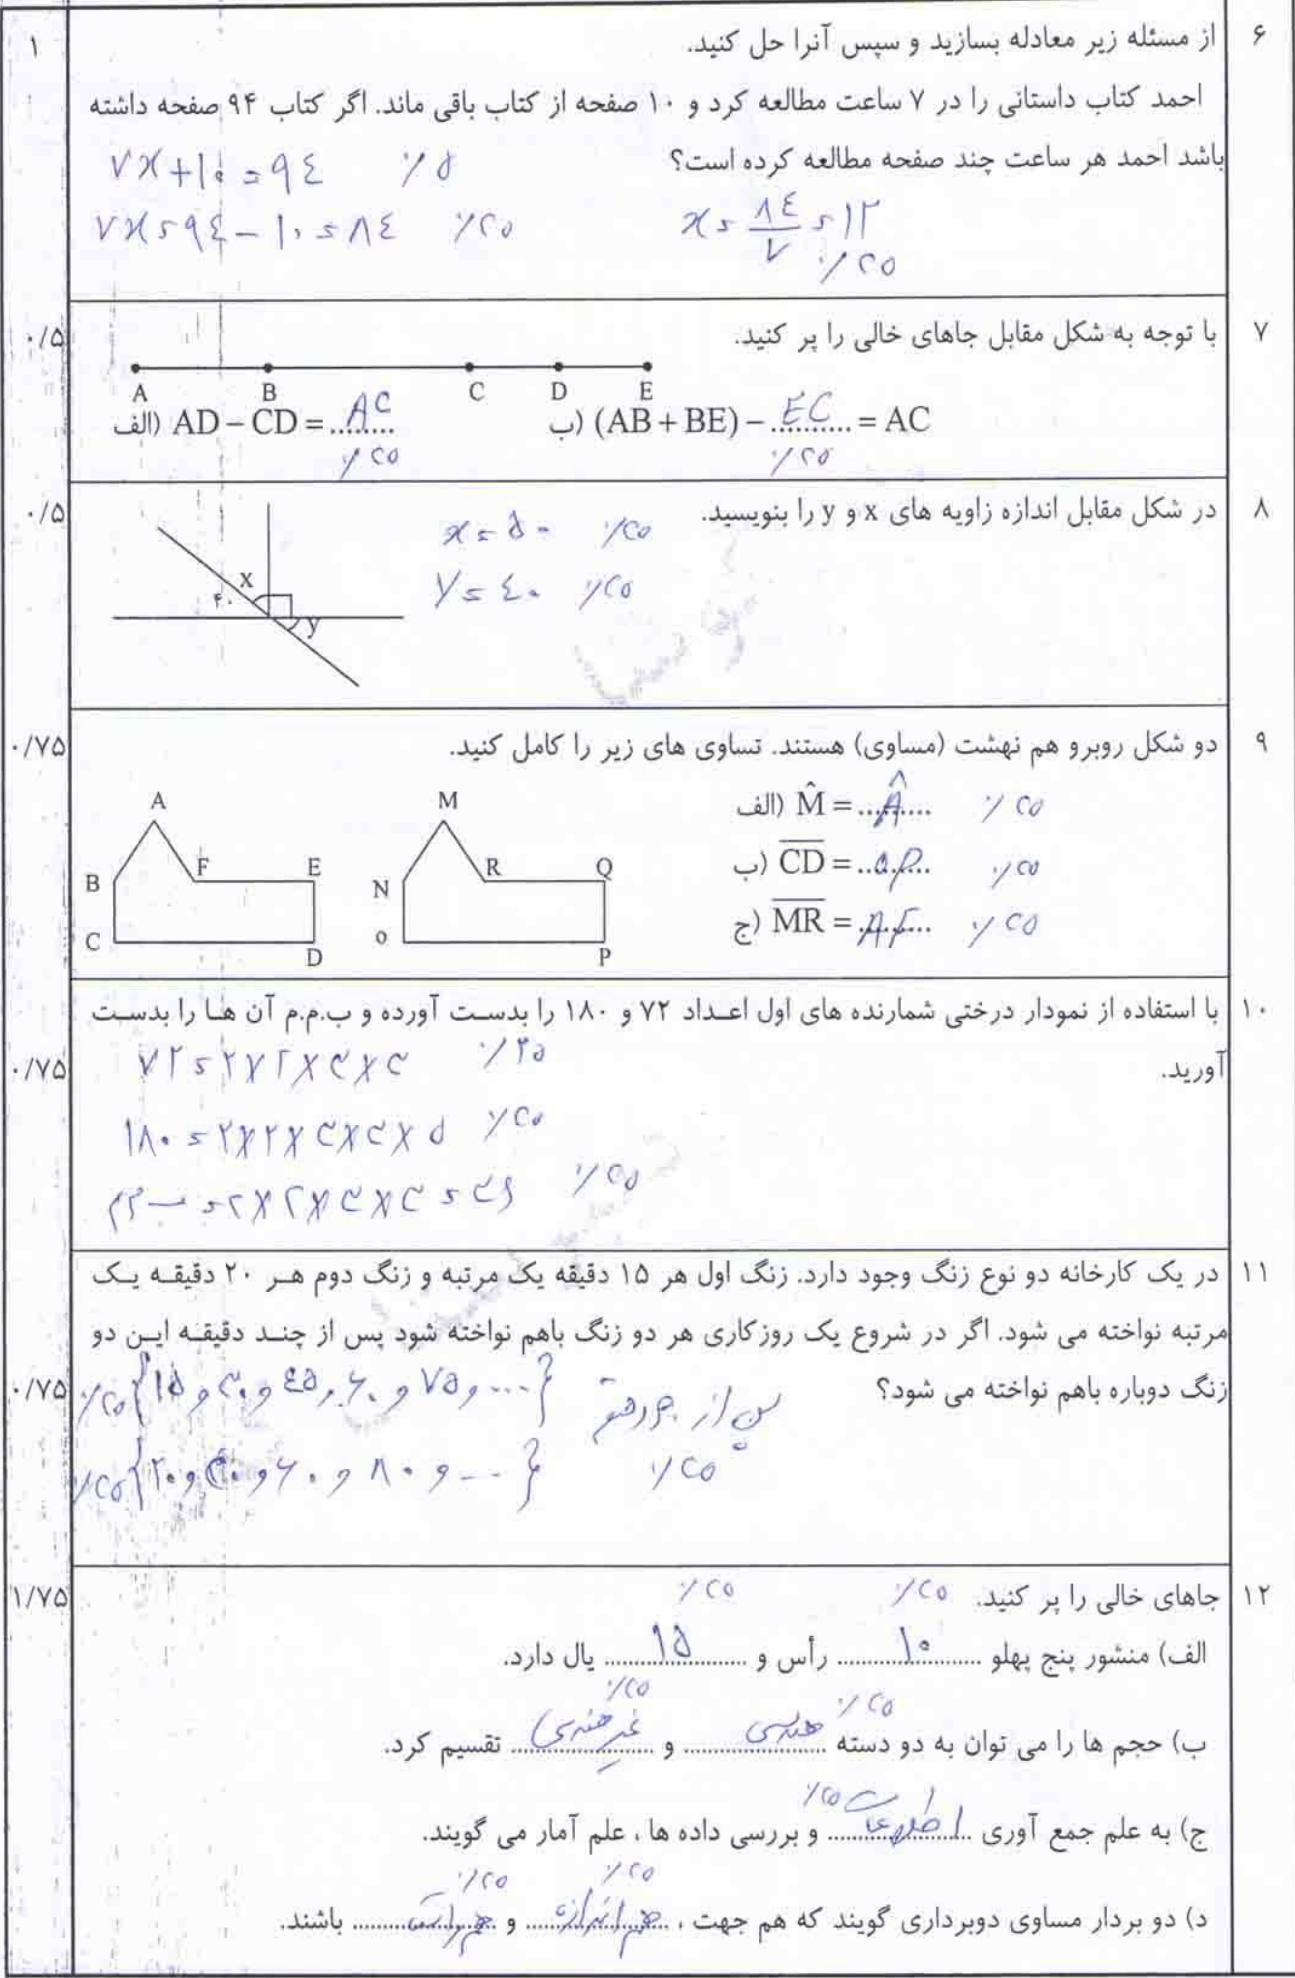 ۶ از مسئله زیر معادله بسازید و سپس آنرا حل کنید. ۱
احمد کتاب داستانی را در ۷ ساعت مطالعه کرد و ۱۰ صفحه از کتاب باقی ماند. اگر کتاب ۹۴ صفحه داشته
باشد احمد هر ساعت چند صفحه مطالعه کرده است؟
۷x+۱۰=۹٤ ٪۵
۷x=۹٤-۱۰=۸٤ ٪۲۵
x=۸٤/۷=۱۲
٪۲۵
۷ با توجه به شکل مقابل جاهای خالی را پر کنید. ۰/۵
A B C D E
الف) AD – CD = ...AC... ب) (AB + BE) – ...EC... = AC
٪۲۵ ٪۲۵
۸ در شکل مقابل اندازه زاویه های x و y را بنویسید. ۰/۵
x=۵۰ ٪۲۵
y=٤۰ ٪۲۵
x
۴۰
y
۹ دو شکل روبرو هم نهشت (مساوی) هستند. تساوی های زیر را کامل کنید. ۰/۷۵
الف) M̂ = ...Â... ٪۲۵
ب) C̅D̅ = ..OP.. ٪۲۵
ج) M̅R̅ = ..AF.. ٪۲۵
A B C D E F
M N O P Q R
۱۰ با استفاده از نمودار درختی شمارنده های اول اعداد ۷۲ و ۱۸۰ را بدست آورده و ب.م.م آن ها را بدست
آورید. ۰/۷۵
۷۲=۲×۲×۲×۳×۳ ٪۲۵
۱۸۰=۲×۲×۳×۳×۵ ٪۲۵
ب م م =۲×۲×۳×۳=۳۶ ٪۲۵
۱۱ در یک کارخانه دو نوع زنگ وجود دارد. زنگ اول هر ۱۵ دقیقه یک مرتبه و زنگ دوم هر ۲۰ دقیقه یک
مرتبه نواخته می شود. اگر در شروع یک روز کاری هر دو زنگ باهم نواخته شود پس از چند دقیقه این دو
زنگ دوباره باهم نواخته می شود؟ ۰/۷۵
٪۲۵ {۱۵ و ۳۰ و ٤۵ و ۶۰ و ۷۵ و ...}
پس از
٪۲۵
٪۲۵ {۲۰ و ٤۰ و ۶۰ و ۸۰ و ...}
۱۲ جاهای خالی را پر کنید. ٪۲۵ ٪۲۵ ۱/۷۵
الف) منشور پنج پهلو ...۱۰... رأس و ...۱۵... یال دارد.
٪۲۵ ٪۲۵
ب) حجم ها را می توان به دو دسته ...هندسی... و ...غیرهندسی... تقسیم کرد.
٪۲۵
ج) به علم جمع آوری ...اطلاعات... و بررسی داده ها ، علم آمار می گویند.
٪۲۵ ٪۲۵
د) دو بردار مساوی دوبرداری گویند که هم جهت ، ...هم اندازه... و ...هم راستا... باشند.